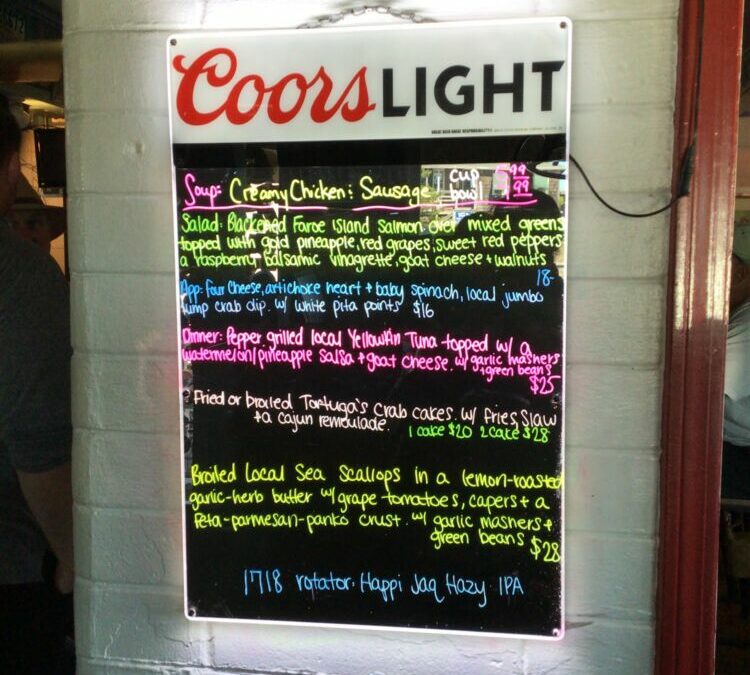 Coors LIGHT
GREAT BEER GREAT RESPONSIBILITY
Soup: Creamy Chicken: Sausage cup 5.99
bowl 7.99
Salad: Blackened Faroe Island Salmon over mixed greens
topped with gold pineapple, red grapes, sweet red peppers
a raspberry balsamic vinagrette, goat cheese + walnuts
18-
App: four Cheese, artichoke heart + baby spinach, local jumbo
lump crab dip. w/ white pita points $16
Dinner: Pepper grilled local Yellowfin Tuna topped w/ a
watermelon/pineapple salsa + goat cheese. w/ garlic mashers
+ green beans
$25
Fried or broiled Tortuga's Crab cakes. w/ fries, slaw
+ a cajun remoulade. 1 cake $20 2 cake $28
Broiled Local Sea Scallops in a lemon-roasted
garlic-herb butter w/ grape tomatoes, capers + a
Feta-parmesan-panko crust. w/ garlic mashers +
green beans $28
1718 rotator: Happi Jaq Hazy IPA